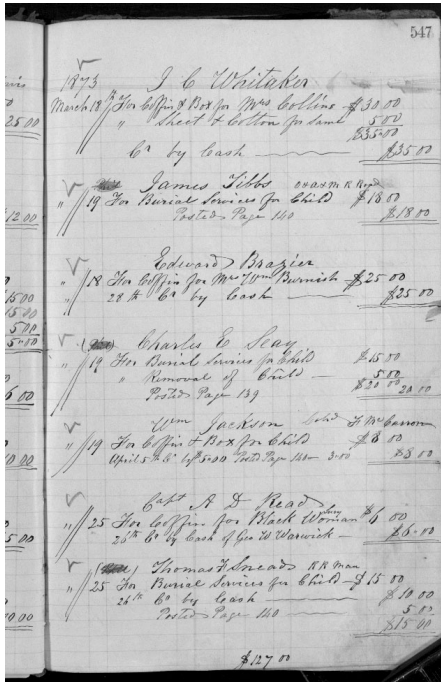 547
1873 J C Whitaker
March 18th For Coffin & Box for Mrs Collins $30.00
" Sheet & Cotton for Same 5.00
$35.00
Cr by Cash $35.00
James Tibbs
" 19 For Burial Services for Child $18 00
Posted Page 140 $18.00
Edward Brazier
" 18 For Coffin for Mrs Wm Burnish $25 00
" 28th Cr by Cash $25 00
Charles E Seay
" 19 For Burial Services for Child $15 00
" Removal of Child 5.00
Posted Page 139 $20 00 20 00
Wm Jackson
" 19 For Coffin & Box for Child $8 00
April 5th Cr by $5.00 Posted Page 140 3.00 $8 00
Capt A D Read
" 25 For Coffin for Black Woman $6 00
26th Cr by Cash of Geo W Warwick $6.00
Thomas F Sneads R R Man
" 25 For Burial Services for Child $15 00
26th Cr by Cash $10 00
Posted Page 140 5 00
$15 00
$127 00
25.00
12.00
15 00
15 00
5 00
5.00
6 00
0.00
5.00
0.00